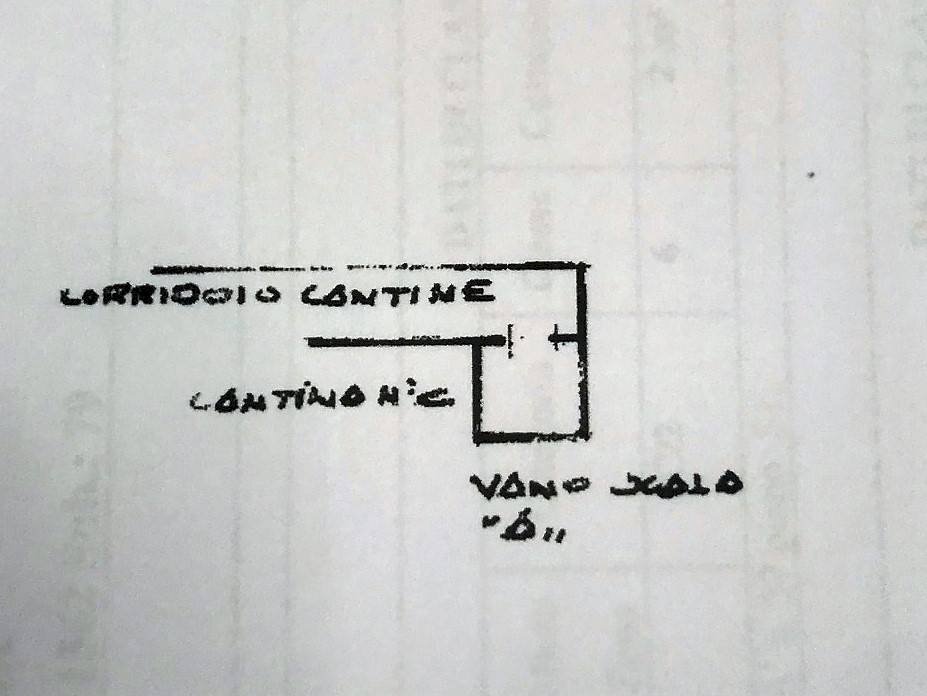 CORRIDOIO CANTINE
CANTINA N°
VANO SCALA
"A"